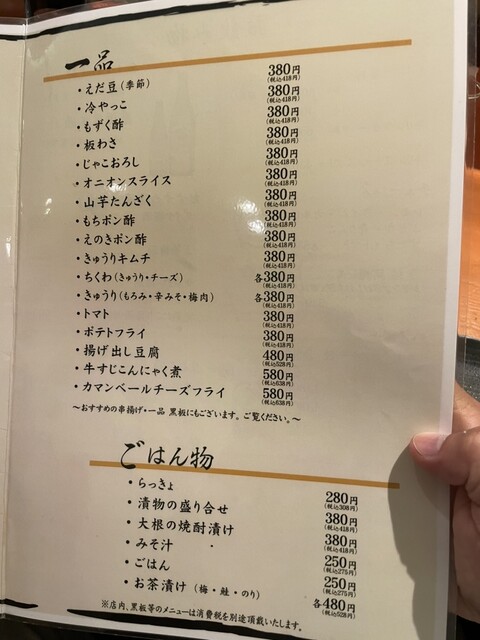 一品
・えだ豆(季節) 380円(税込418円)
・冷やっこ 380円(税込418円)
・もずく酢 380円(税込418円)
・板わさ 380円(税込418円)
・じゃこおろし 380円(税込418円)
・オニオンスライス 380円(税込418円)
・山芋たんざく 380円(税込418円)
・もちポン酢 380円(税込418円)
・えのきポン酢 380円(税込418円)
・きゅうりキムチ 380円(税込418円)
・ちくわ(きゅうり・チーズ) 各380円(税込418円)
・きゅうり(もろみ・辛みそ・梅肉) 各380円(税込418円)
・トマト 380円(税込418円)
・ポテトフライ 380円(税込418円)
・揚げ出し豆腐 480円(税込528円)
・牛すじこんにゃく煮 580円(税込638円)
・カマンベールチーズフライ 580円(税込638円)
〜おすすめの串揚げ・一品 黒板にもございます。ご覧ください。〜
ごはん物
・らっきょ 280円(税込308円)
・漬物の盛り合せ 380円(税込418円)
・大根の焼酎漬け 380円(税込418円)
・みそ汁 250円(税込275円)
・ごはん 250円(税込275円)
・お茶漬け(梅・鮭・のり) 各480円(税込528円)
※店内、黒板等のメニューは消費税を別途頂戴いたします。